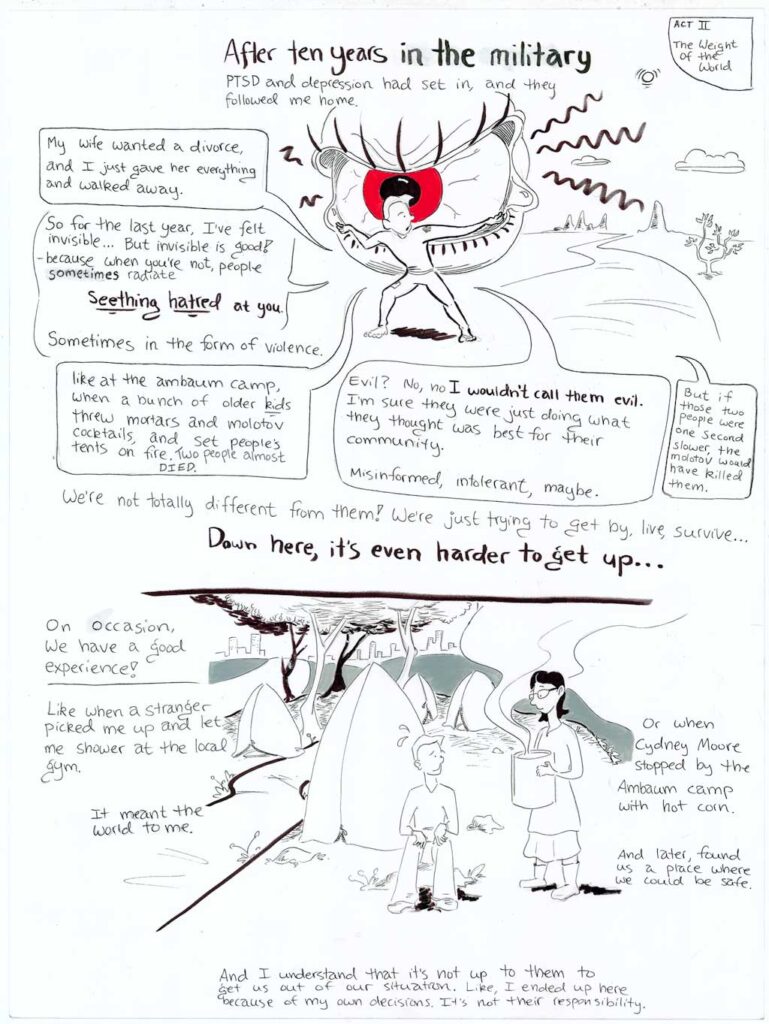 ACT II
The Weight
of the
World
After ten years in the military
PTSD and depression had set in, and they
followed me home.
My wife wanted a divorce,
and I just gave her everything
and walked away.
So for the last year, I've felt
invisible... But invisible is good!
-because when you're not, people
sometimes radiate
Seething hatred at you.
Sometimes in the form of violence.
like at the ambaum camp,
when a bunch of older kids
threw mortars and molotov
cocktails, and set people's
tents on fire. Two people almost
DIED.
Evil? No, no I wouldn't call them evil.
I'm sure they were just doing what
they thought was best for their
community.
Misinformed, intolerant, maybe.
But if
those two
people were
one second
slower, the
molotov would
have killed
them.
We're not totally different from them! We're just trying to get by, live, survive...
Down here, it's even harder to get up...
On occasion,
We have a good
experience!
Like when a stranger
picked me up and let
me shower at the local
gym.
It meant the
world to me.
Or when
Cydney Moore
stopped by the
Ambaum camp
with hot corn.
And later, found
us a place where
we could be safe.
And I understand that it's not up to them to
get us out of our situation. Like, I ended up here
because of my own decisions. It's not their responsibility.